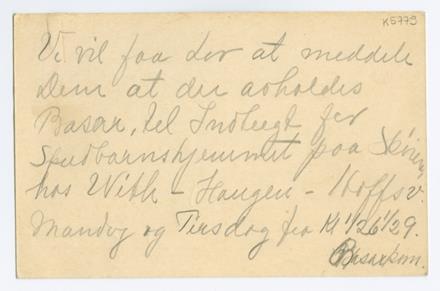 K5779
Vi vil faa Lov at meddele
Dem at der avholdes
Basar, til Indtægt for
Spedbarnshjemmet paa
hos With - Haugen - Hoffsv.
Mandag og Tirsdag fra Kl
Basarkom.